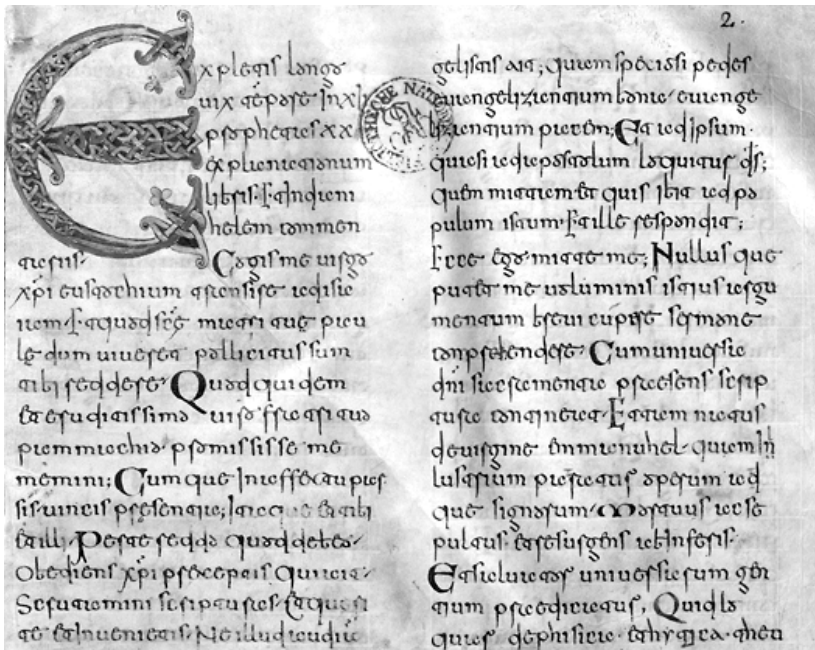 2.
Expletis longo
uix tẽpore In xii
prophetas xx
explanationum
libris. Et In dani
helem commen
tariis. Cogis me uirgo
xp̄i eustochium transire ad isa
iam. Et quod scē matri tuę pau
lę dum uiueret pollicitus sum
tibi reddere. Quod quidem
et erudittissimo uiro fratri tuo
pammachio promisisse me
memini; Cumque In affectu par
sis. uincis presentia; Itaque et tibi
et illi. Per te reddo quod debeo.
Obediens xp̄i preceptis qui ait.
Scrutamini scripturas. Et queri
te et Inuenietis. Ne illud audia
gelistis ait; quam speciosi pedes
euangelizantium bona. euange
lizantium pacem; Et ad ipsum.
quasi ad apostolum loquitus d̄s;
quem mittam et quis ibit ad po
pulum istum. Et ille respondit;
Ecce ego. mitte me; Nullus que
putet me uoluminis istius argu
mentum breui cupire sermone
conprehendere. Cum uniuersa
dn̄i sacramenta presens scrip
tura contineat. Et tam natus
de uirgine emmanuhel. quam In
lustrium patratus operum ad
que signorum. Mortuus ac se
pultus. et resurgens ab Inferis.
Et saluator uniuersarum gen
tium predicatus. Quid lo
quar de phisica. ethyca. theo